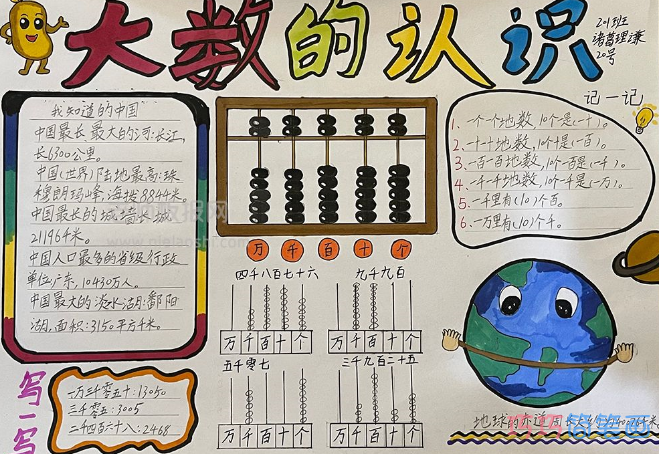 大数的认识
201班
诸葛理谦
20号
"我知道的中国"
中国最长最大的河:长江,
长6300公里。
中国(世界)陆地最高:珠
穆朗玛峰,海拔8844米。
中国最长的城墙长城
21196千米。
中国人口最多的省级行政
单位广东,10430万人。
中国最大的淡水湖:鄱阳
湖,面积:3150平方千米。
写一写
一万三千零五十:13050
三千零五:3005
二千四百六十八:2468
万 千 百 十 个
四千八百七十六
万千百十个
九千九百
万千百十个
五千零七
万千百十个
三千九百二十五
万千百十个
记一记
1、一个一个地数,10个是(一十)。
2、一十一十地数,10个十是(一百)。
3、一百一百地数,10个一百是(一千)。
4、一千一千地数,10个一千是(一万)。
5、一千里有(10)个百。
6、一万里有(10)个千。
地球的赤道周长大约
简笔画